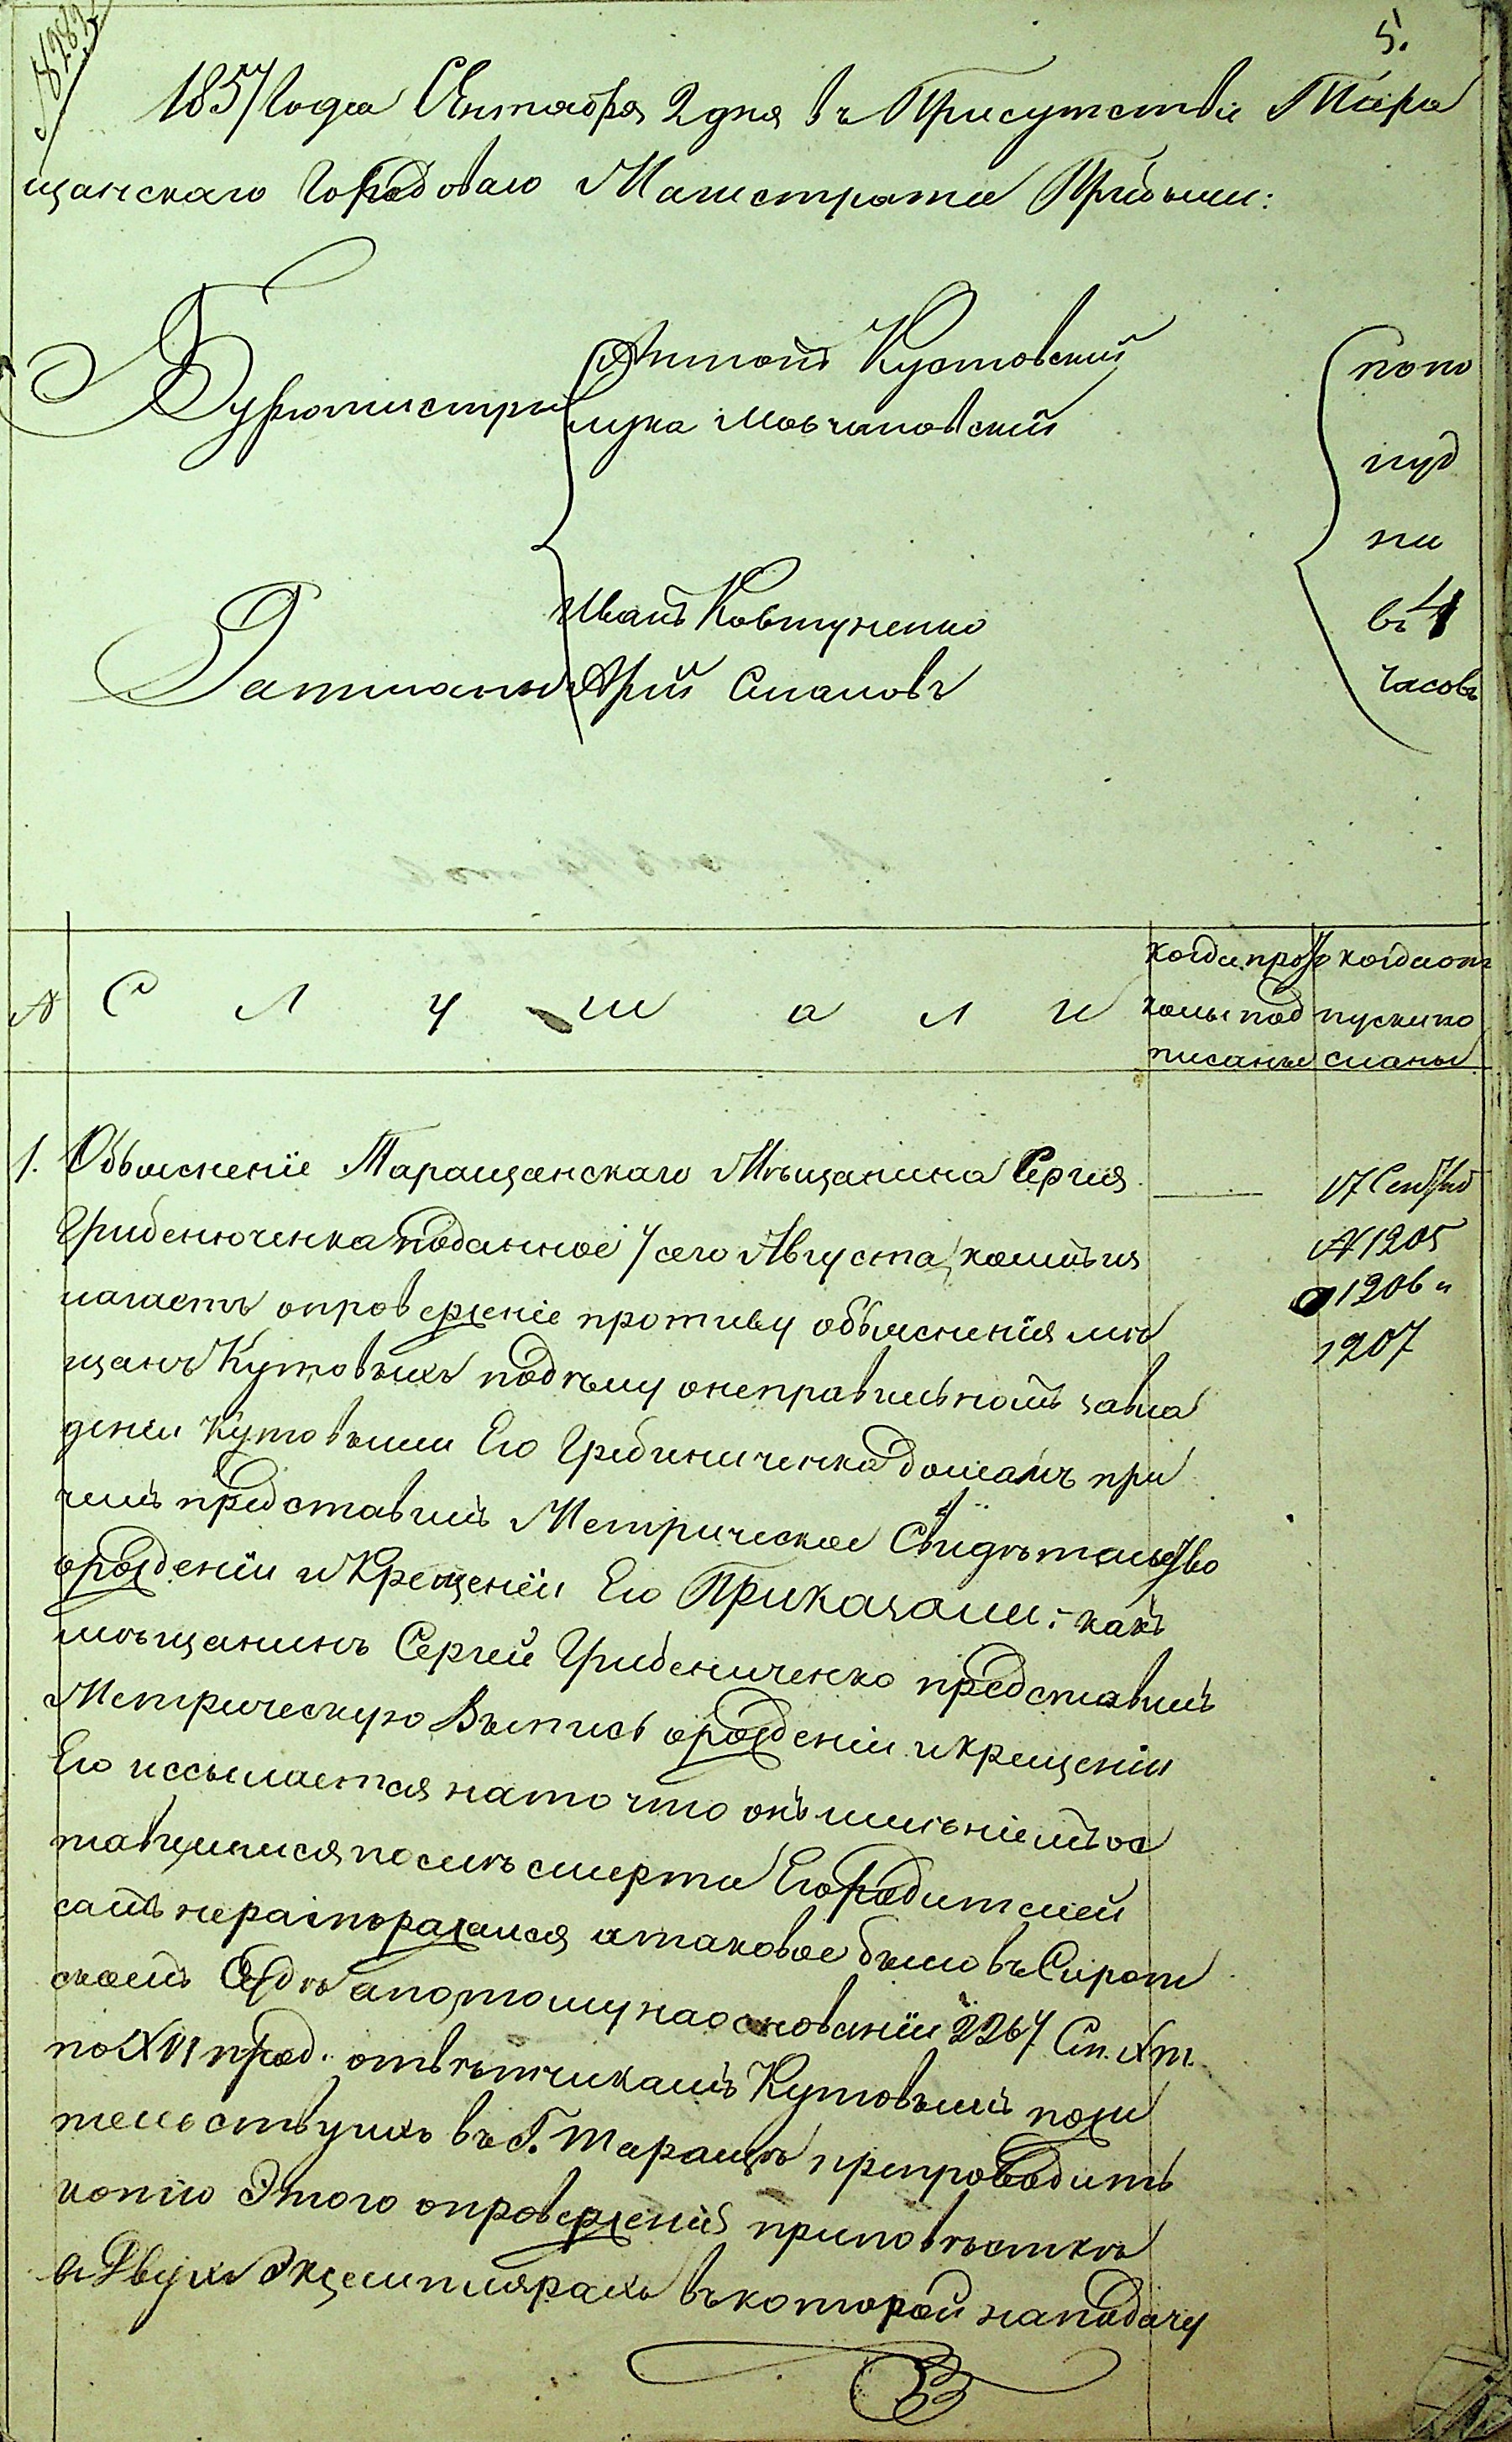 № 282
5.
1857 Года Сентября 2 дня въ Присутствіе Тара
щанскаго Городоваго Магистрата Прибыли:
Бургомистры
Антонъ Кустовскій
Лука Мовчановскій
попо
луд
ни
въ 4
часовъ
Ратманы
Иванъ Ковтуненко
Арій Слановъ
№ С л у ш а л и
когда прото
колы под
писаны
когда от
пуски по
сланы
1. Объясненіе Таращанскаго Мѣщанина Сергія
Грибенюченка поданное 7 сего Августа, коимъ из
лагаетъ опроверженіе противу объясненія мѣ
щанъ Кутовыхъ по дѣлу о неправильномъ завла
деніи Кутовыми Его Грибениченка домамъ при
чемъ представилъ Метрическое Свидѣтельство
о рожденіи и Крещеніи Его Приказали: какъ
мѣщанинъ Сергей Грибениченко представилъ
Метрическую Выпись о рожденіи и крещеніи
Его и ссылается на то что онъ имѣніемъ ос
тавшимися послѣ смерти Его Родителей
самъ нераспоряжался а таковое было въ Сирот
скомъ Судѣ а потому на основаніи 2267 Ст. X т.
по XVI прод. отвѣтчикамъ Кутовымъ пожи
тельствуихъ въ Г. Таращѣ препроводить
копію Этого опроверженія при повѣсткѣ
въ Двухъ Экземплярахъ въ которой на подачу
17 Сентяб
№ 1205
1206 и
1207